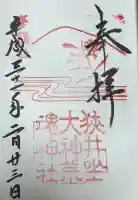 奉拝
狹井坐
大神荒
魂神社
平成三十一年二月廿三日